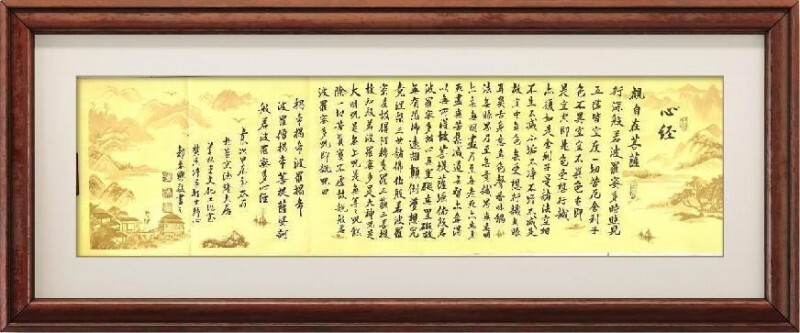 心经
觀自在菩薩
行深般若波羅蜜多時照見
五蘊皆空度一切苦厄舍利子
色不異空空不異色色即
是空空即是色受想行識
亦復如是舍利子是諸法空相
不生不滅不垢不淨不增不減是
故空中無色無受想行識無眼
耳鼻舌身意無色聲香味觸
法無眼界乃至無意識界無無明
亦無無明盡乃至無老死亦無老
死盡無苦集滅道無智亦無得
以無所得故菩提薩埵依般若
波羅蜜多故心無罣礙無罣礙故
無有恐怖遠離顛倒夢想究
竟涅槃三世諸佛依般若波羅
蜜多故得阿耨多羅三藐三菩提
故知般若波羅蜜多是大神咒是
大明咒是無上咒是無等等咒能
除一切苦真實不虛故說般若
波羅蜜多咒即說咒曰
揭帝揭帝波羅揭帝
波羅僧揭帝菩提薩婆訶
般若波羅蜜多心經